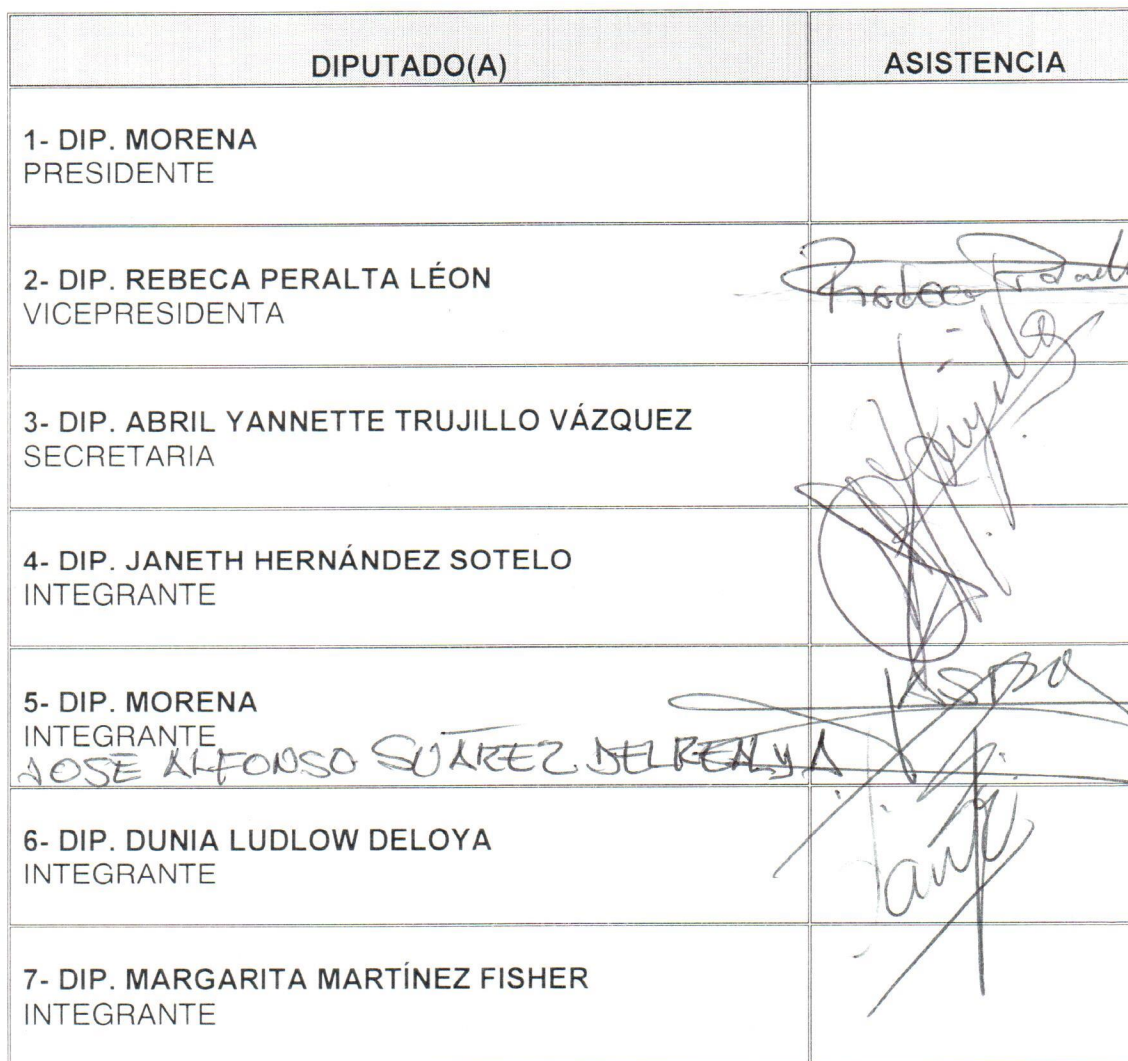 DIPUTADO(A) ASISTENCIA
1- DIP. MORENA
PRESIDENTE
2- DIP. REBECA PERALTA LÉON
VICEPRESIDENTA
3- DIP. ABRIL YANNETTE TRUJILLO VÁZQUEZ
SECRETARIA
4- DIP. JANETH HERNÁNDEZ SOTELO
INTEGRANTE
5- DIP. MORENA
INTEGRANTE
JOSE ALFONSO SUÁREZ DEL REAL Y A
6- DIP. DUNIA LUDLOW DELOYA
INTEGRANTE
7- DIP. MARGARITA MARTÍNEZ FISHER
INTEGRANTE